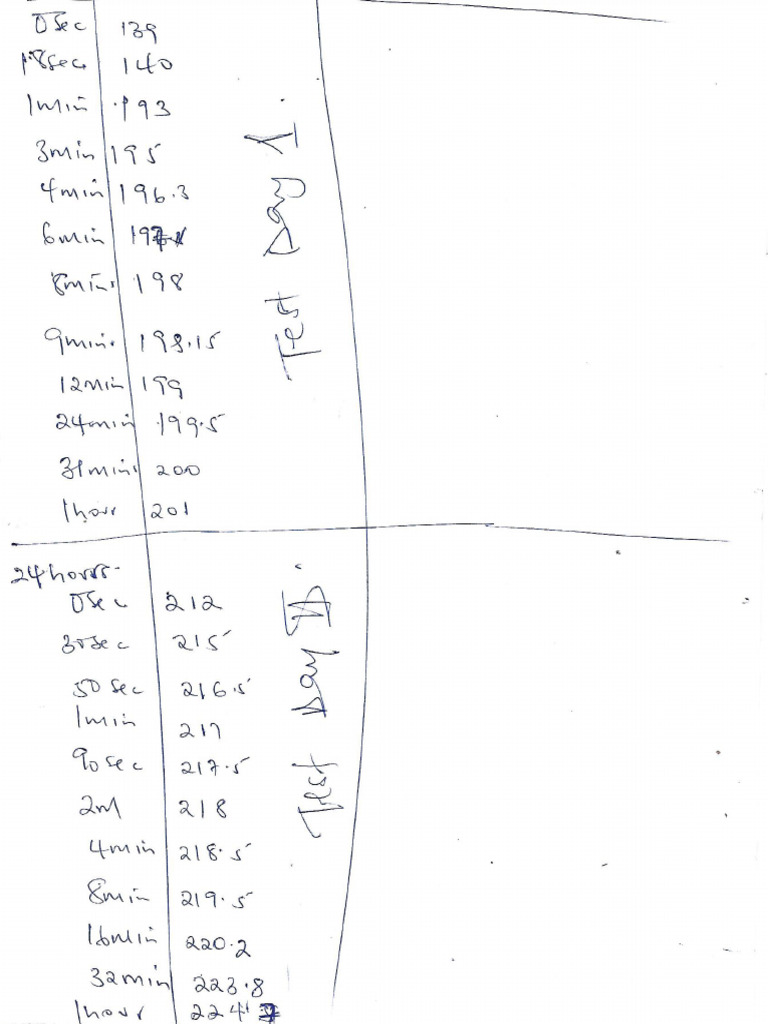 0sec 139
18sec 140
1min 193
3min 195
4min 196.3
6min
8min. 198
9min. 198.15
12min 199
24min 199.5
31min. 200
1hour 201
Test Day I.
24hours.
0sec 212
30sec 215
50sec 216.5
1min 217
90sec 217.5
2m 218
4min 218.5
8min 219.5
16min 220.2
32min 223.8
1hour 224
Test Day II.